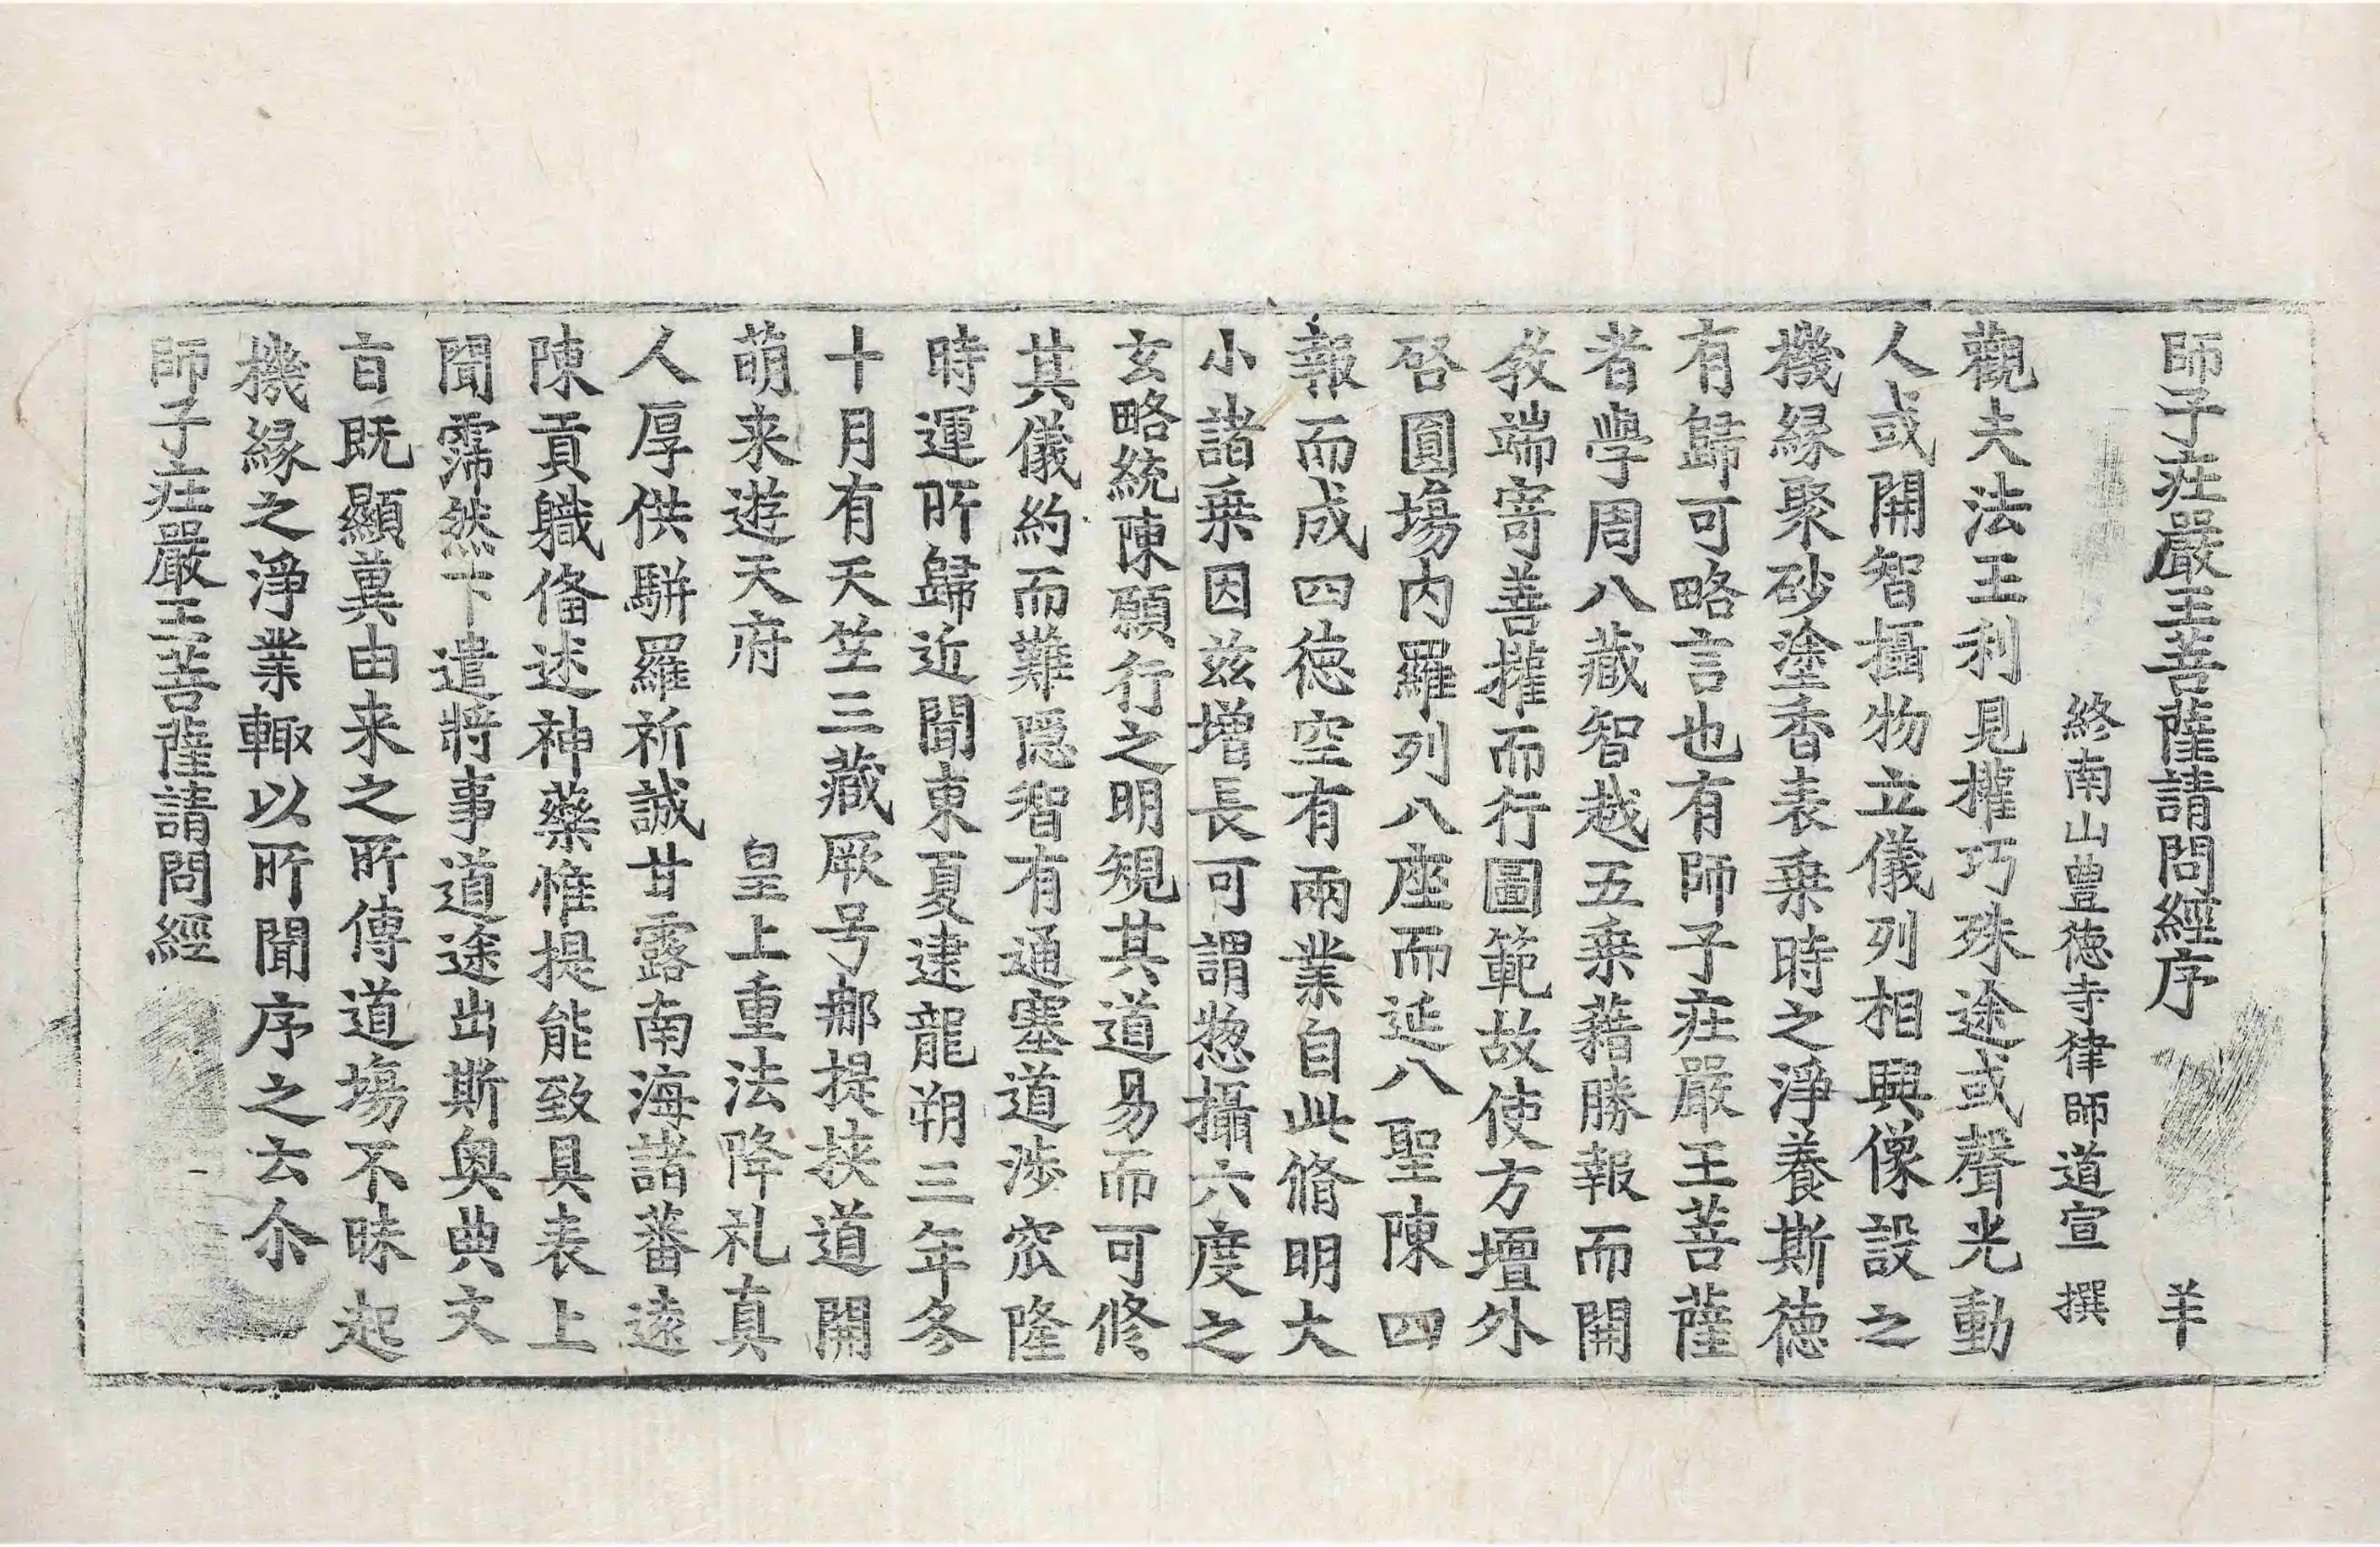 師子荘嚴王菩薩請問經序 羊
終南山豊徳寺律師道宣 撰
觀夫法王利見權巧殊途或聲光動
人或開智攝物立儀列相興像設之
機緣聚砂塗香表乗時之淨養斯徳
有歸可略言也有師子荘嚴王菩薩
者學周八藏智越五乗藉勝報而開
教端寄善權而行圖範故使方壇外
啓圓場内羅列八座而延八聖陳四
報而成四徳空有兩業自此脩明大
小諸乗因兹增長可謂惣攝六度之
玄略統陳願行之明規其道易而可修
其儀約而難隱智有通塞道涉宻隆
時運所歸近聞東夏逮龍朔三年冬
十月有天竺三藏厥号郍提挾道開
萌来遊天府 皇上重法降礼真
人厚供駢羅祈誠甘露南海諸蕃遠
陳貢職俻述神藥惟提能致具表上
聞霈然下遣將事道途出斯奥典文
㫖既顯兾由来之所傳道場不昧起
機縁之淨業輙以所聞序之云尒
師子荘嚴王菩薩請問經